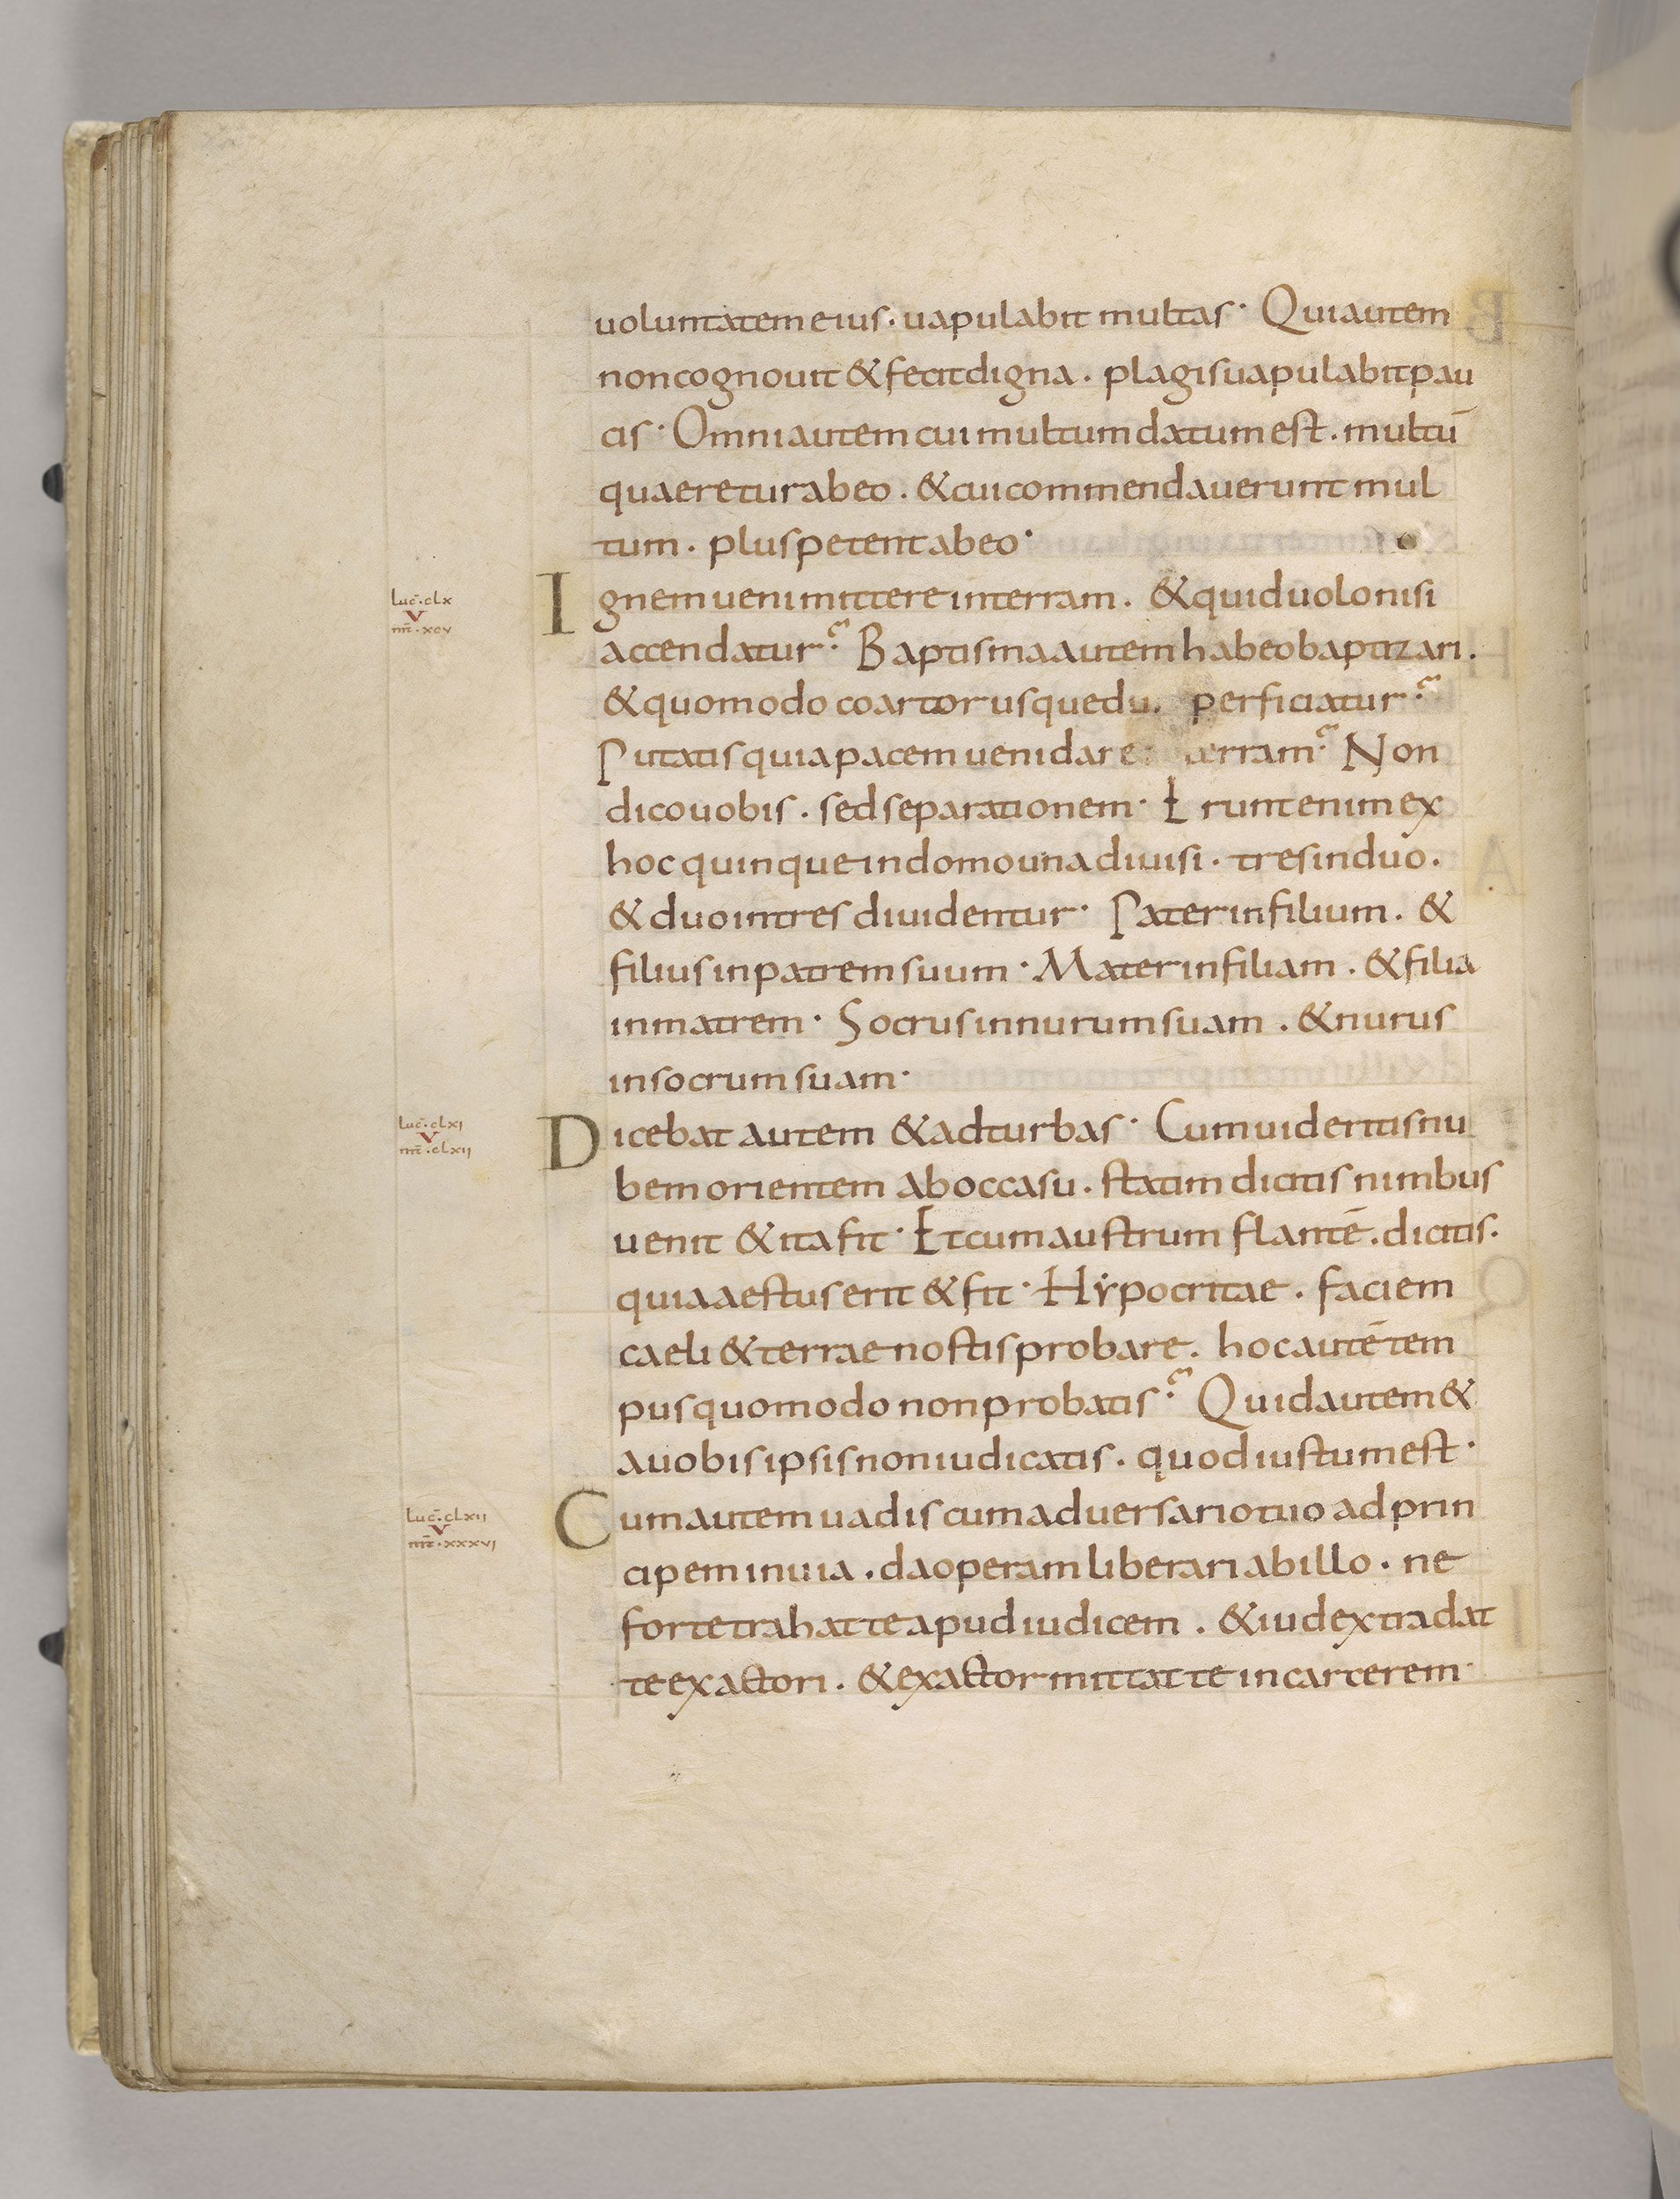 uoluntatem eius · uapulabit multas · Qui autem
non cognouit & fecit digna · plagis uapulabit pau
cis · Omni autem cui multum datum est · multū
quaeretur ab eo · & cui commendauerunt mul
tum · plus petent ab eo ·
luc̄ · clx
V
mt̄ · xcv
Ignem ueni mittere in terram · & quid uolo nisi
accendatur? Baptisma autem habeo baptizari ·
& quomodo coartor usque du perficiatur?
Putatis quia pacem ueni dare terram? Non
dico uobis · sed separationem · Erunt enim ex
hoc quinque in domo una diuisi · tres in duo ·
& duo in tres diuidentur · Pater in filium · &
filius in patrem suum · Mater in filiam · & filia
in matrem · Socrus in nurum suam · & nurus
in socrum suam ·
luc̄ · clxi
V
mt̄ · clxii
Dicebat autem & ad turbas · Cum uideritis nu
bem orientem ab occasu · statim dicitis nimbus
uenit & ita fit · Et cum austrum flantē · dicitis ·
quia aestus erit & fit · Hypocritae · faciem
caeli & terrae nostis probare · hoc autē tem
pus quomodo non probatis? Quid autem &
a uobis ipsis non iudicatis · quod iustum est ·
luc̄ · clxii
V
mt̄ · xxxvi
Cum autem uadis cum aduersario tuo ad prin
cipem in uia · da operam liberari ab illo · ne
forte trahat te apud iudicem · & iudex tradat
te exactori · & exactor mittat te in carcerem ·